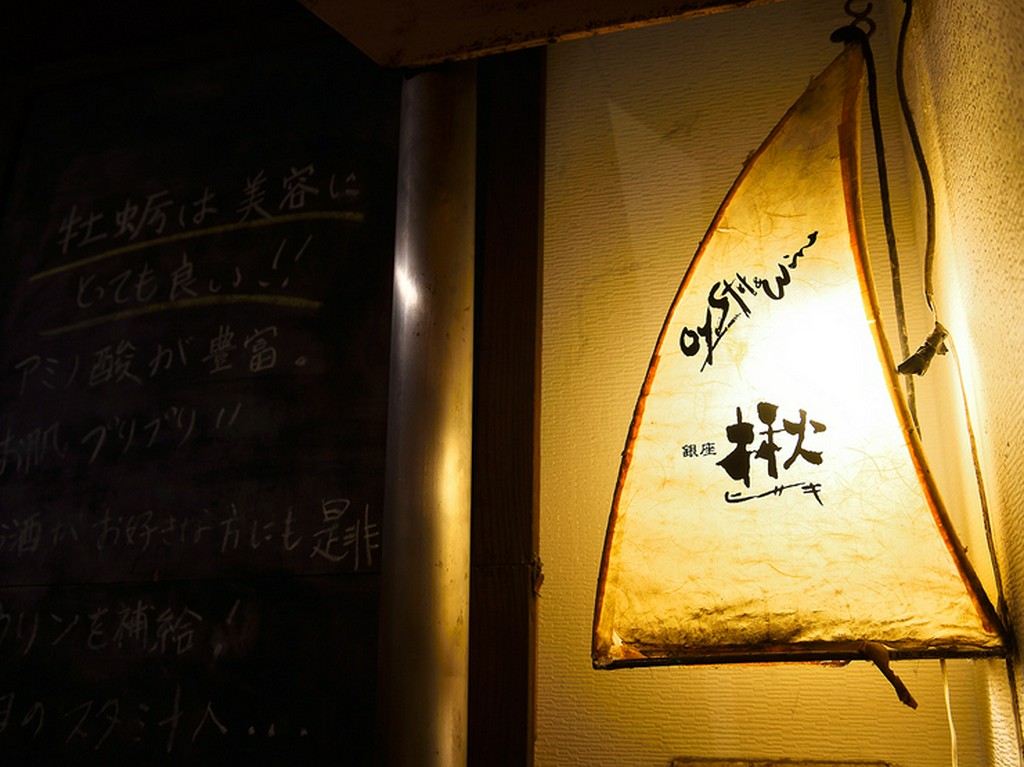 牡蛎は美容に
とても良い!!
アミノ酸が豊富。
お肌プリプリ!!
お酒がお好きな方にも是非
ウリンを補給!
のスタミナ
Oyster & Wine
銀座
楸
ヒサキ